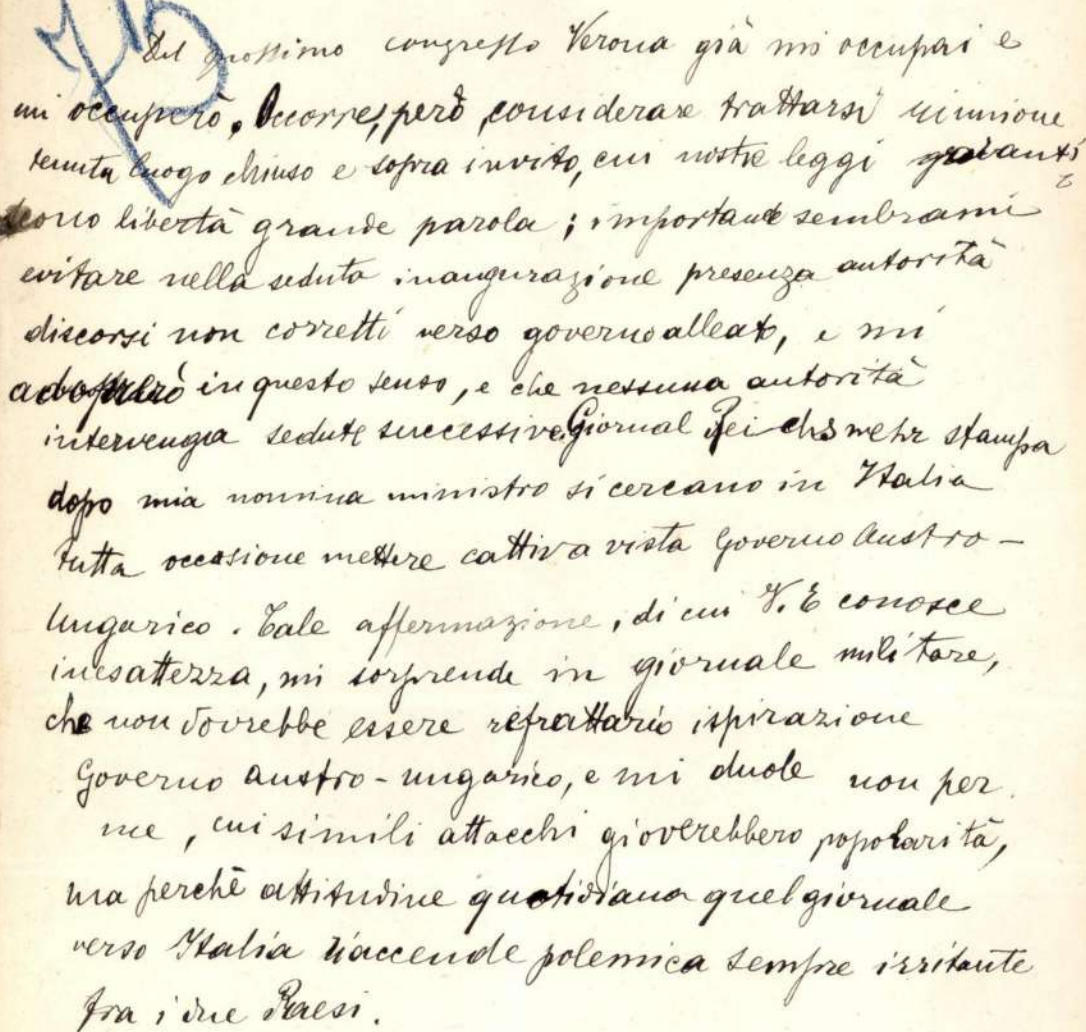 Del prossimo congresso Verona già mi occupai e
mi occuperò. Occorre, però, considerare trattarsi riunione
tenuta luogo chiuso e sopra invito, cui nostre leggi garanti
scono libertà grande parola; importante sembrami
evitare nella seduta inaugurazione presenza autorità
discorsi non corretti verso governo alleato, e mi
adoprerò in questo senso, e che nessuna autorità
intervenga sedute successive. Giornal Reichswehr stampa
dopo mia nomina ministro si cercano in Italia
tutta occasione mettere cattiva vista Governo Austro-
Ungarico. Tale affermazione, di cui V. E conosce
inesattezza, mi sorprende in giornale militare,
che non dovrebbe essere refrattario ispirazione
Governo austro-ungarico, e mi duole non per
me, cui simili attacchi gioverebbero popolarità,
ma perchè attitudine quotidiana quel giornale
verso Italia riaccende polemica sempre irritante
fra i due Paesi.